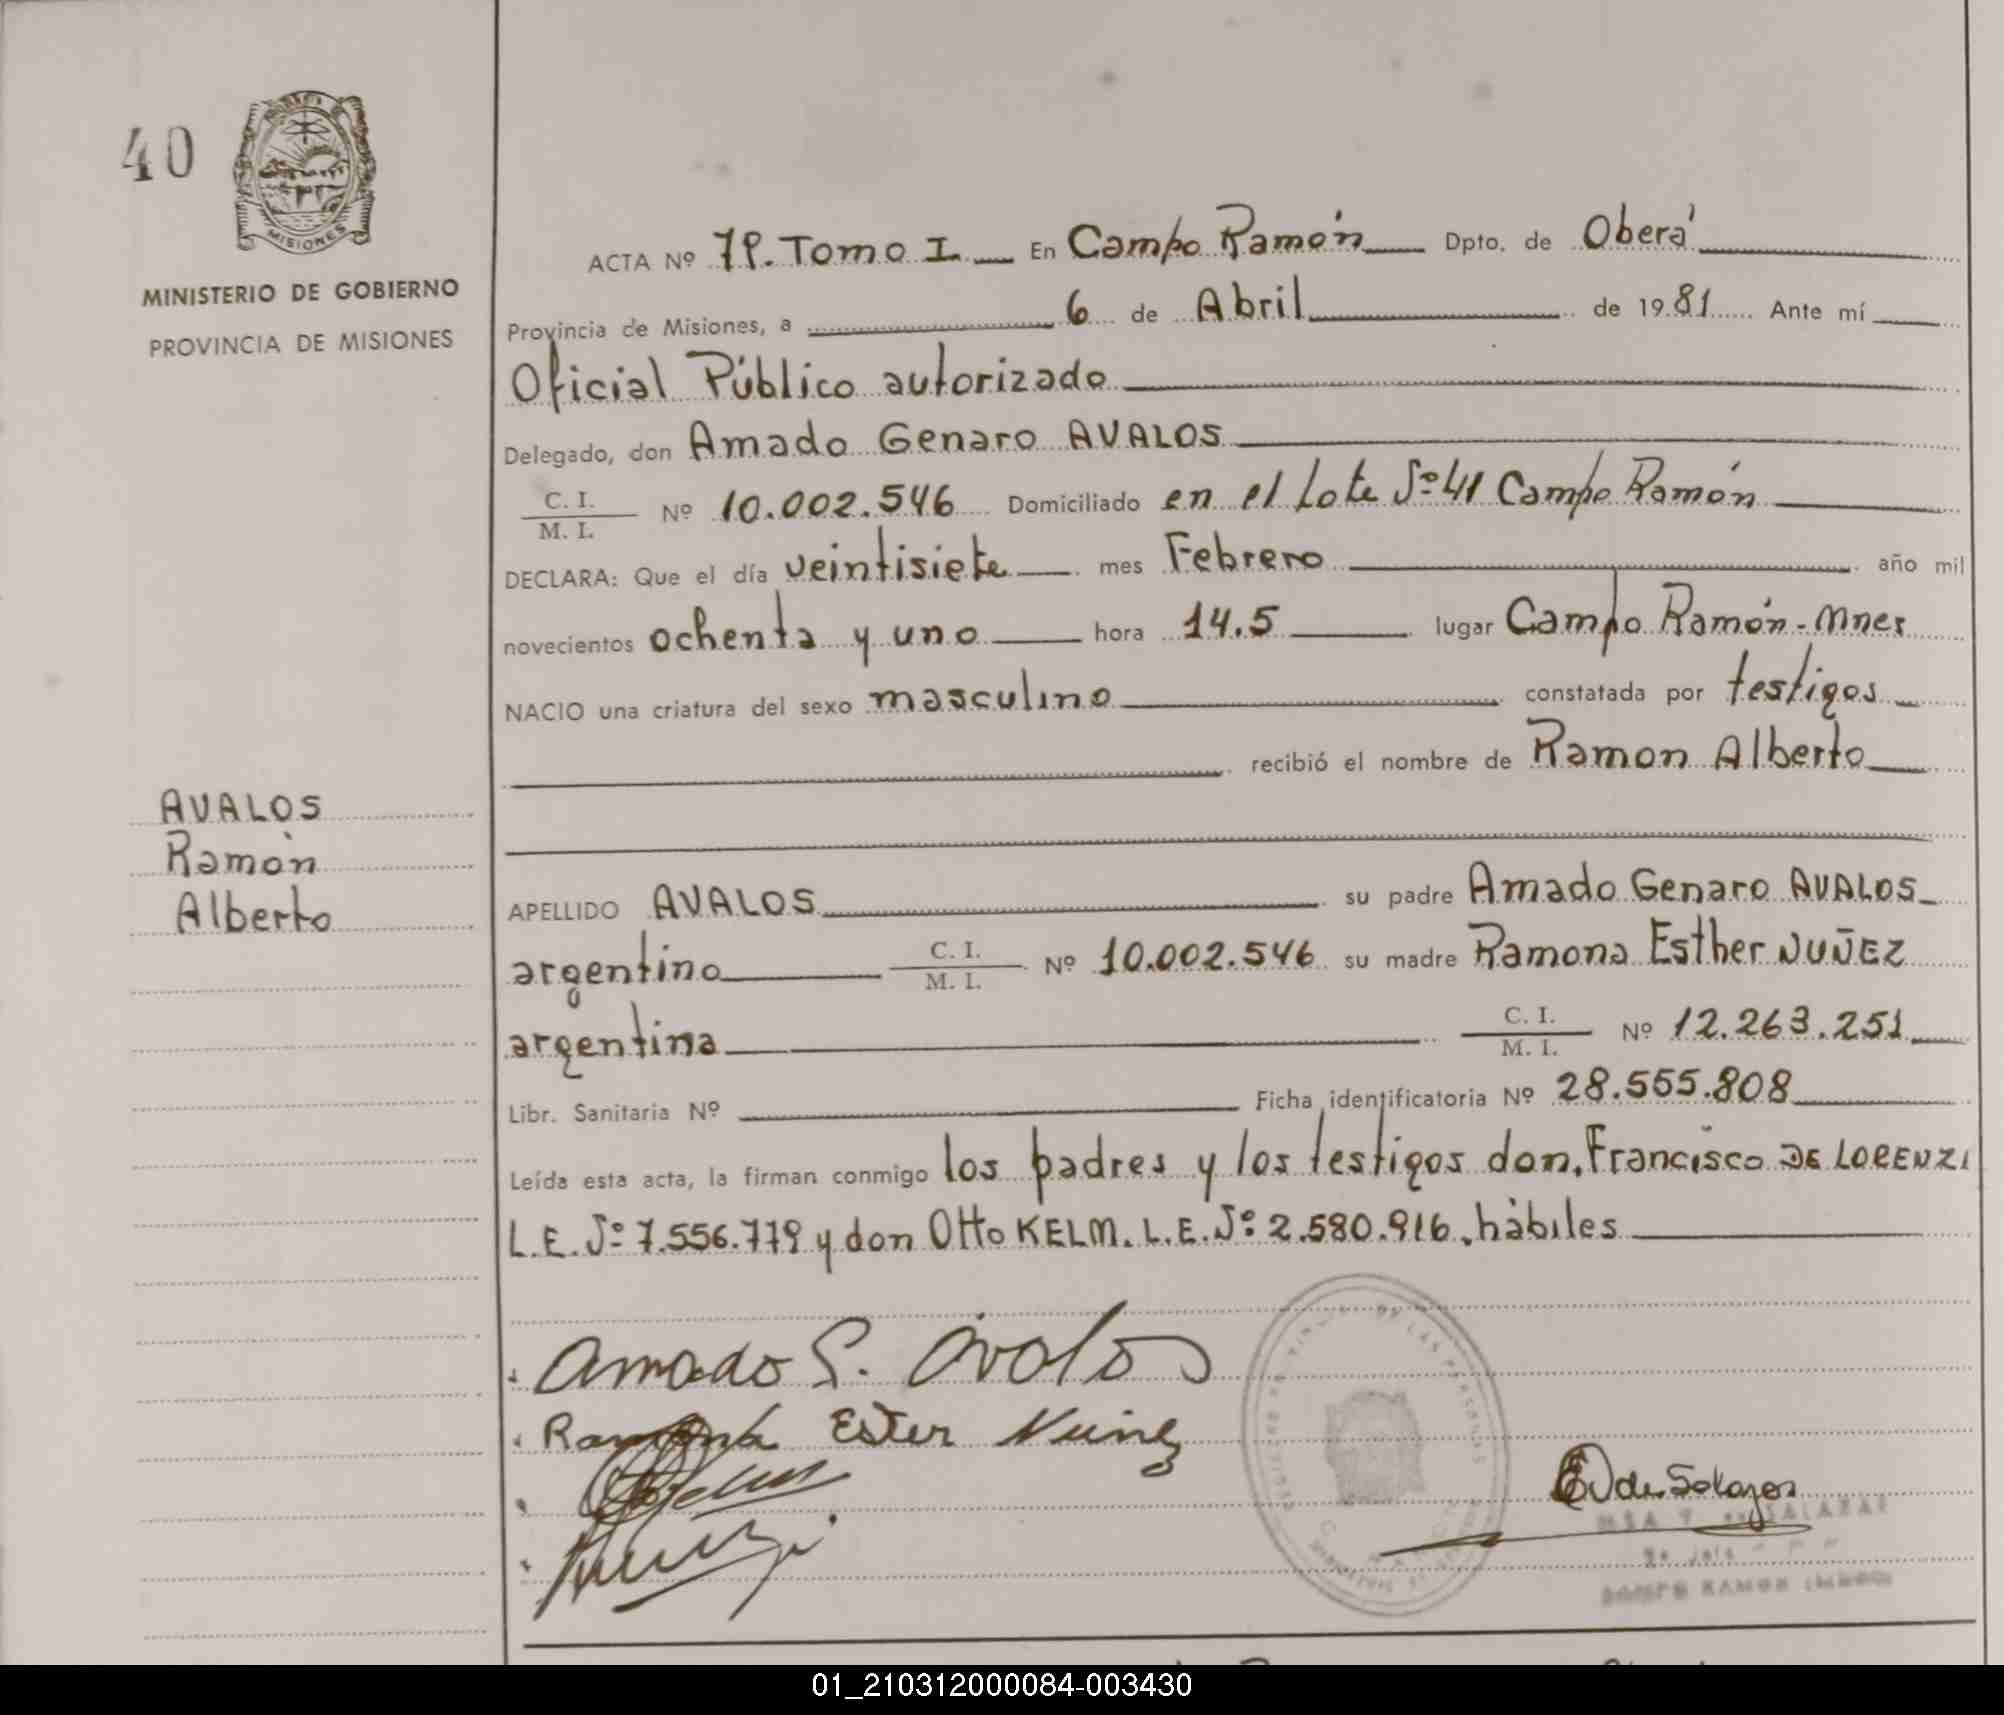 40
MISIONES
MINISTERIO DE GOBIERNO
PROVINCIA DE MISIONES
AVALOS
Ramón
Alberto
ACTA Nº 79. Tomo I. En Campo Ramón Dpto. de Oberá
Provincia de Misiones, a 6 de Abril de 1981 Ante mí
Oficial Público autorizado
Delegado, don Amado Genaro AVALOS
C. I.
M. I. Nº 10.002.546 Domiciliado en el Lote Nº 41 Campo Ramón
DECLARA: Que el día veintisiete mes Febrero año mil
novecientos ochenta y uno hora 14.5 lugar Campo Ramón - Mnes
NACIO una criatura del sexo masculino constatada por testigos
recibió el nombre de Ramon Alberto
APELLIDO AVALOS su padre Amado Genaro AVALOS
argentino C. I. M. I. Nº 10.002.546 su madre Ramona Esther NUÑEZ
argentina C. I. M. I. Nº 12.263.251
Libr. Sanitaria Nº Ficha identificatoria Nº 28.555.808
Leída esta acta, la firman conmigo los padres y los testigos don, Francisco DE LORENZI
L.E. Nº 7.556.779 y don Otto KELM. L.E. Nº 2.580.916, hàbiles
Amado G. Avalos
Ramona Ester Nuñez
E V de Salazar
SALAZAR
CAMPO RAMON
01_210312000084-003430